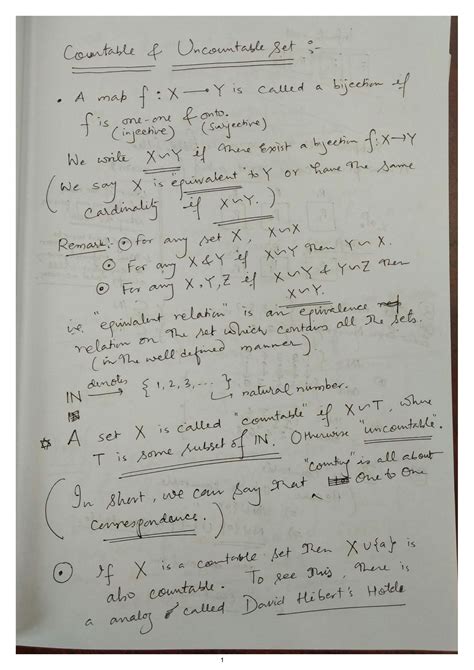 Countable & Uncountable Set :-
• A map f : X → Y is called a bijection if
f is one-one & onto.
(injective) (Surjective)
We write X∽Y if there exist a bjection f: X→Y
(We say X is "equivalent" to Y or have the same
cardinality if X∽Y.)
Remark:- ⊙ For any set X, X∽X
⊙ For any X & Y if X∽Y then Y∽X.
⊙ For any X, Y, Z if X∽Y & Y∽Z then
X∽Y.
i.e. "equivalent relation" is an equivalence
relation on the set which contains all the sets.
(in the well defined manner)
IN denotes { 1, 2, 3, ... } natural number.
☆ A set X is called "countable" if X∽T, where
T is some subset of IN. Otherwise "uncountable".
(In short, we can say that "counting" is all about
One to One
correspondance.)
⊙ If X is a countable set then X∪{a} is
also countable. To see this, there is
a analog called David Hilbert's Hotel
1